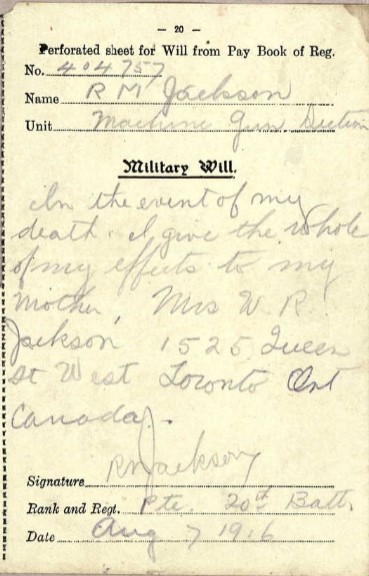 — 20 —
Perforated sheet for Will from Pay Book of Reg.
No. 404757
Name R M Jackson
Unit Machine Gun Section
Military Will.
In the event of my
death. I give the whole
of my effects to my
Mother, Mrs W. R
Jackson 1525 Queen
St West Toronto Ont
Canada.
Signature R M Jackson
Rank and Regt. Pte. 20th Batt.
Date Aug 7 1916